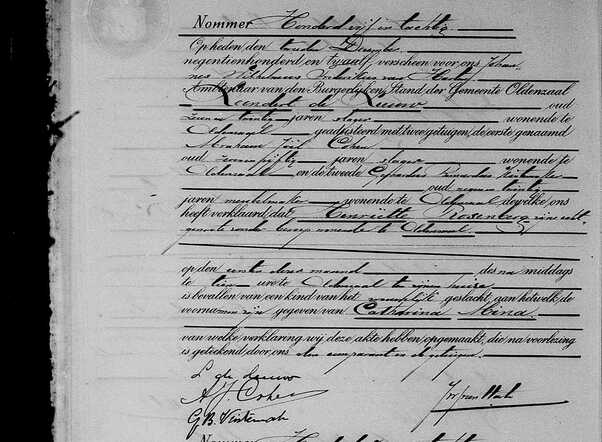 Nommer Honderd vijf en tachtig
Op heden den tweede December
negentienhonderd en twaalf, verscheen voor ons
nes Wilhelmus van
Ambtenaar van den Burgerlijken Stand der Gemeente Oldenzaal
Leendert de Leeuw oud
zeven twintig jaren slager wonende te
Oldenzaal geadsisteerd met twee getuigen, de eerste genaamd
Abraham Cohen
oud zeven vijftig jaren slager wonende te
Oldenzaal en de tweede
oud negen twintig
jaren meubelmaker wonende te Oldenzaal dewelke ons
heeft verklaard, dat Henriette Rosenberg zijne echt-
genoote zonder beroep wonende te Oldenzaal
op den eersten dezer maand des na middags
te tien ure te Oldenzaal te zijnen huize
is bevallen van een kind van het vrouwelijk geslacht, aan hetwelk de
voornamen zijn gegeven van Catharina Mina.
van welke verklaring wij deze akte hebben opgemaakt, die na voorlezing
is geteekend door ons, den comparant en de getuigen.
L de Leeuw
A J Cohen
G.B.
Nommer Honderd